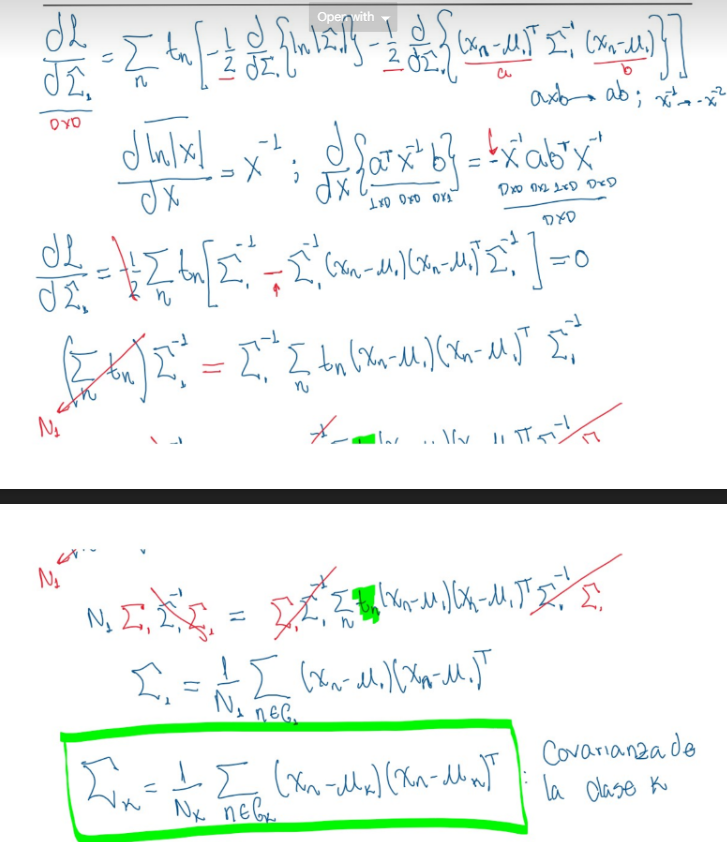 Open with
dL/dΣ₁ = Σₙ tₙ [ -1/2 d/dΣ₁ {ln|Σ₁|} - 1/2 d/dΣ₁ {(xₙ-μ₁)ᵀ Σ₁⁻¹ (xₙ-μ₁)} ]
D×D a b
axb → ab ; x⁻¹ → -x⁻²
d ln|x|/dx = x⁻¹ ; d/dx {aᵀ x⁻¹ b} = -x⁻¹ abᵀ x⁻¹
1×D D×D D×1 D×D D×1 1×D D×D
D×D
dL/dΣ₁ = -1/2 Σₙ tₙ [ Σ₁⁻¹ - Σ₁⁻¹ (xₙ-μ₁)(xₙ-μ₁)ᵀ Σ₁⁻¹ ] = 0
(Σₙ tₙ) Σ₁⁻¹ = Σ₁⁻¹ Σₙ tₙ (xₙ-μ₁)(xₙ-μ₁)ᵀ Σ₁⁻¹
N₁
N₁
N₁ Σ₁ Σ₁⁻¹ Σ₁ = Σ₁ Σ₁⁻¹ Σₙ tₙ (xₙ-μ₁)(xₙ-μ₁)ᵀ Σ₁⁻¹ Σ₁
Σ₁ = 1/N₁ Σ n∈C₁ (xₙ-μ₁)(xₙ-μ₁)ᵀ
Σₖ = 1/Nₖ Σ n∈Cₖ (xₙ-μₖ)(xₙ-μₖ)ᵀ : Covarianza de
la clase k